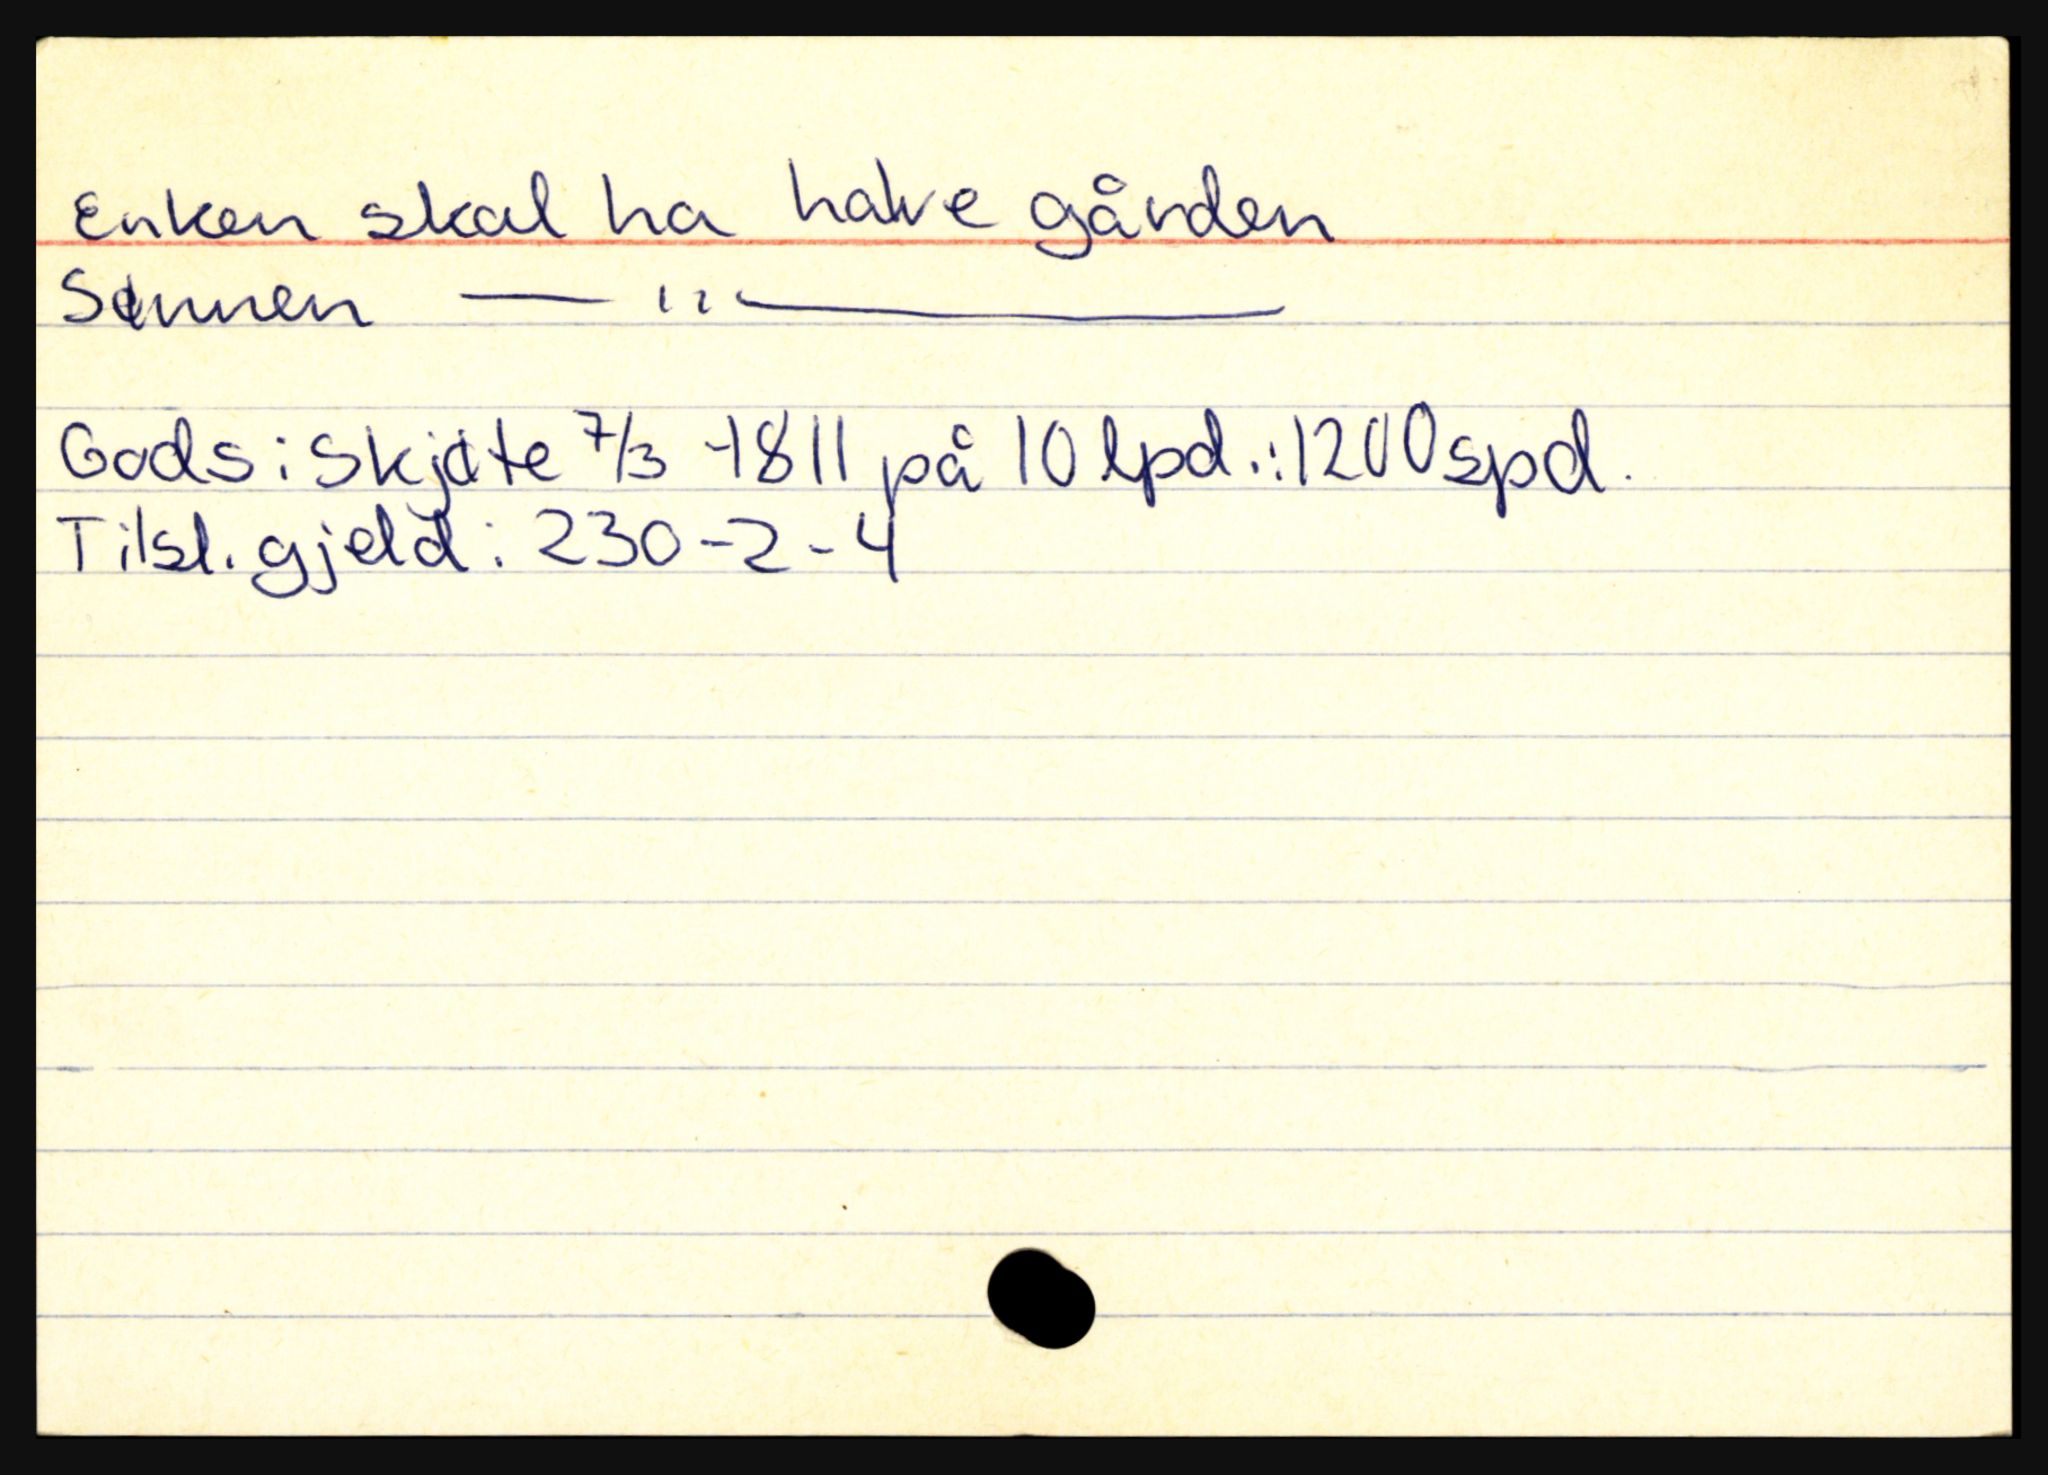 Enken skal ha halve gården
Sønnen — " —
Gods: Skjøte 7/3 -1811 på 10 lpd.: 1200 spd.
Tilsl. gjeld: 230-2-4